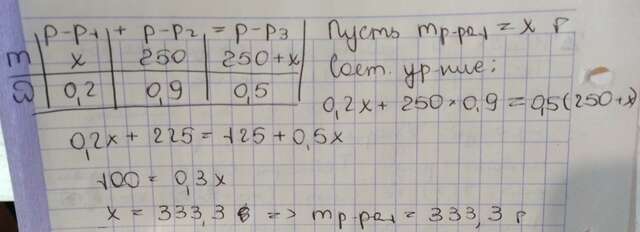 р-р₁ + р-р₂ = р-р₃
m x 250 250+x
ω 0,2 0,9 0,5
Пусть mр-ра₁ = x г
Сост. ур-ние:
0,2x + 250*0,9 = 0,5(250+x)
0,2x + 225 = 125 + 0,5x
100 = 0,3x
x = 333,3 => mр-ра₁ = 333,3 г